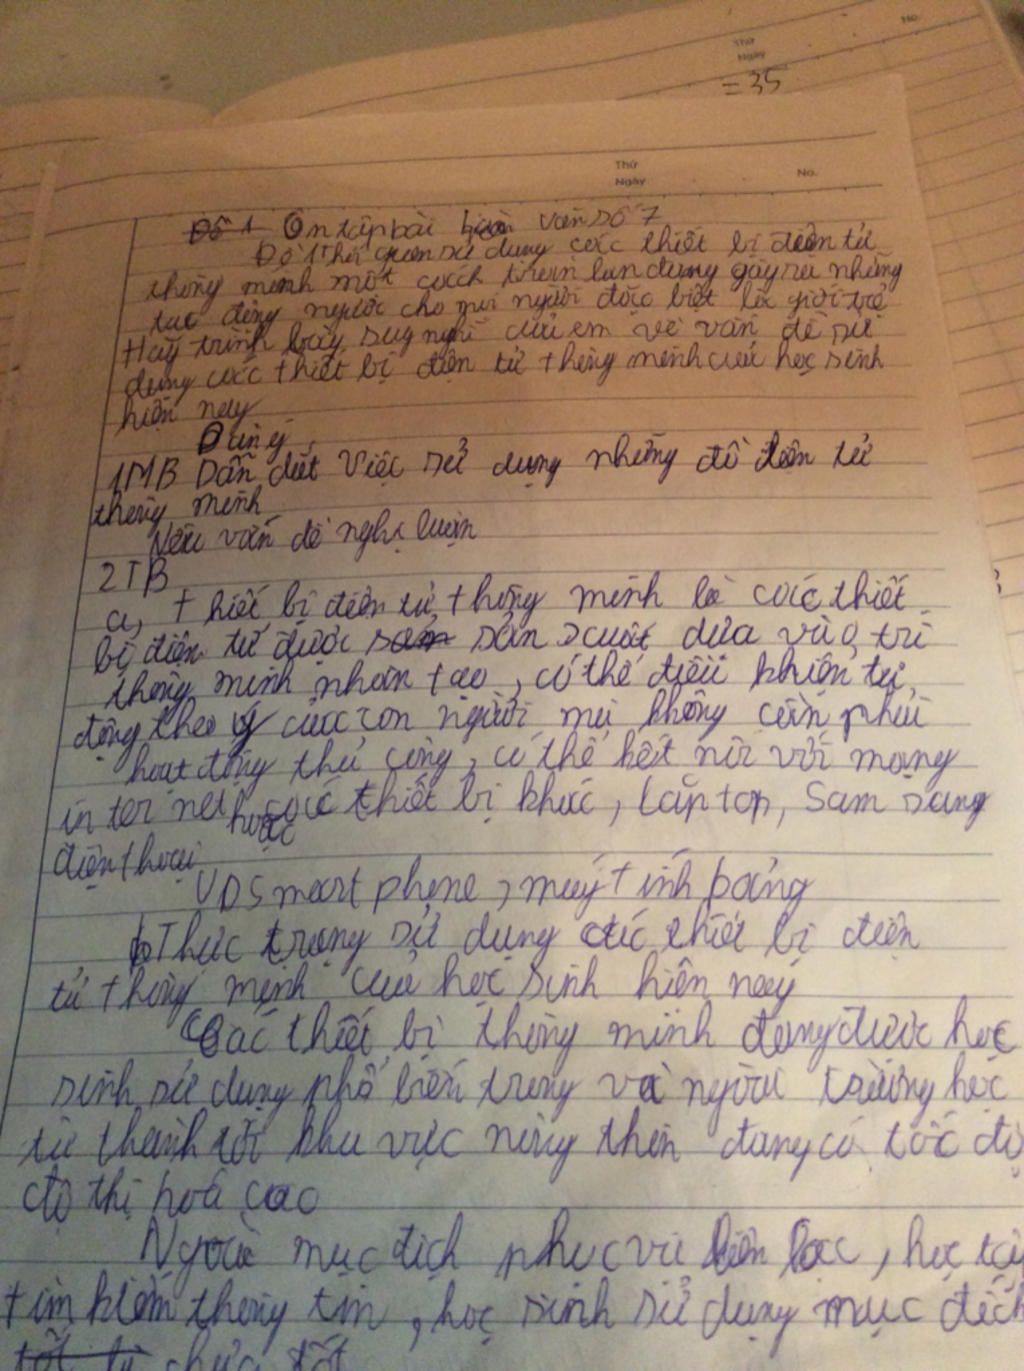 No.
Thứ
Ngày
= 35
Thứ
Ngày
No.
Ôn tập bài văn số 7
Đề 1 Thói quen sử dụng các thiết bị điện tử
thông minh một cách tràn lan đang gây ra những
tác động ngược cho mọi người đặc biệt là giới trẻ
Hãy trình bày suy nghĩ của em về vấn đề sử
dụng các thiết bị điện tử thông minh của học sinh
hiện nay
Dàn ý
1 MB Dẫn dắt Việc sử dụng những đồ điện tử
thông minh
Nêu vấn đề nghị luận
2 TB
a, Thiết bị điện tử thông minh là các thiết
bị điện tử được sản xuất dựa vào trí
thông minh nhân tạo, có thể điều khiển tự
động theo ý của con người mà không cần phải
hoạt động thủ công, có thể kết nối với mạng
internet hoặc các thiết bị khác, Laptop, Sam sung
điện thoại
VD Smart phone, máy tính bảng
b Thực trạng sử dụng các thiết bị điện
tử thông minh của học sinh hiện nay
Các thiết bị thông minh đang được học
sinh sử dụng phổ biến trong và ngoài trường học
từ thành tới khu vực nông thôn đang có tốc độ
đô thị hoá cao
Ngoài mục đích phục vụ liên lạc, học tập
tìm kiếm thông tin, học sinh sử dụng mục đích
chưa tốt